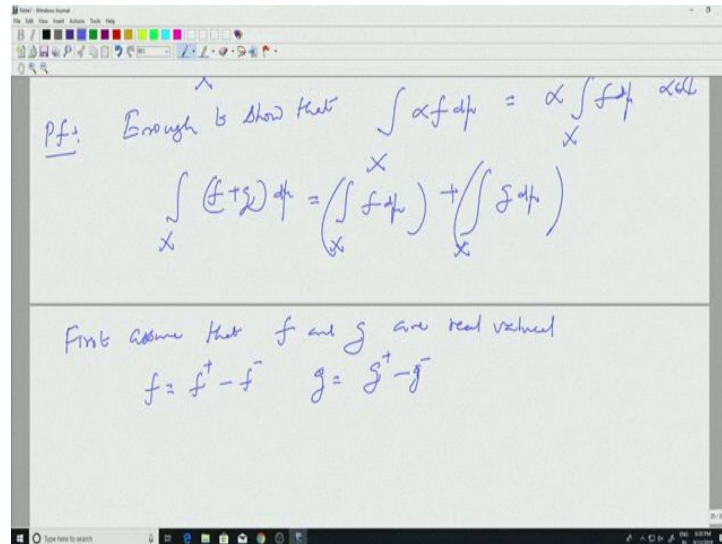 Note1 - Windows Journal
File Edit View Insert Actions Tools Help
Pf: Enough to show that ∫_X αf dμ = α ∫_X f dμ
∫_X (f+g) dμ = (∫_X f dμ) + (∫_X g dμ)
First assume that f and g are real valued
f = f⁺ - f⁻ g = g⁺ - g⁻
Type here to search